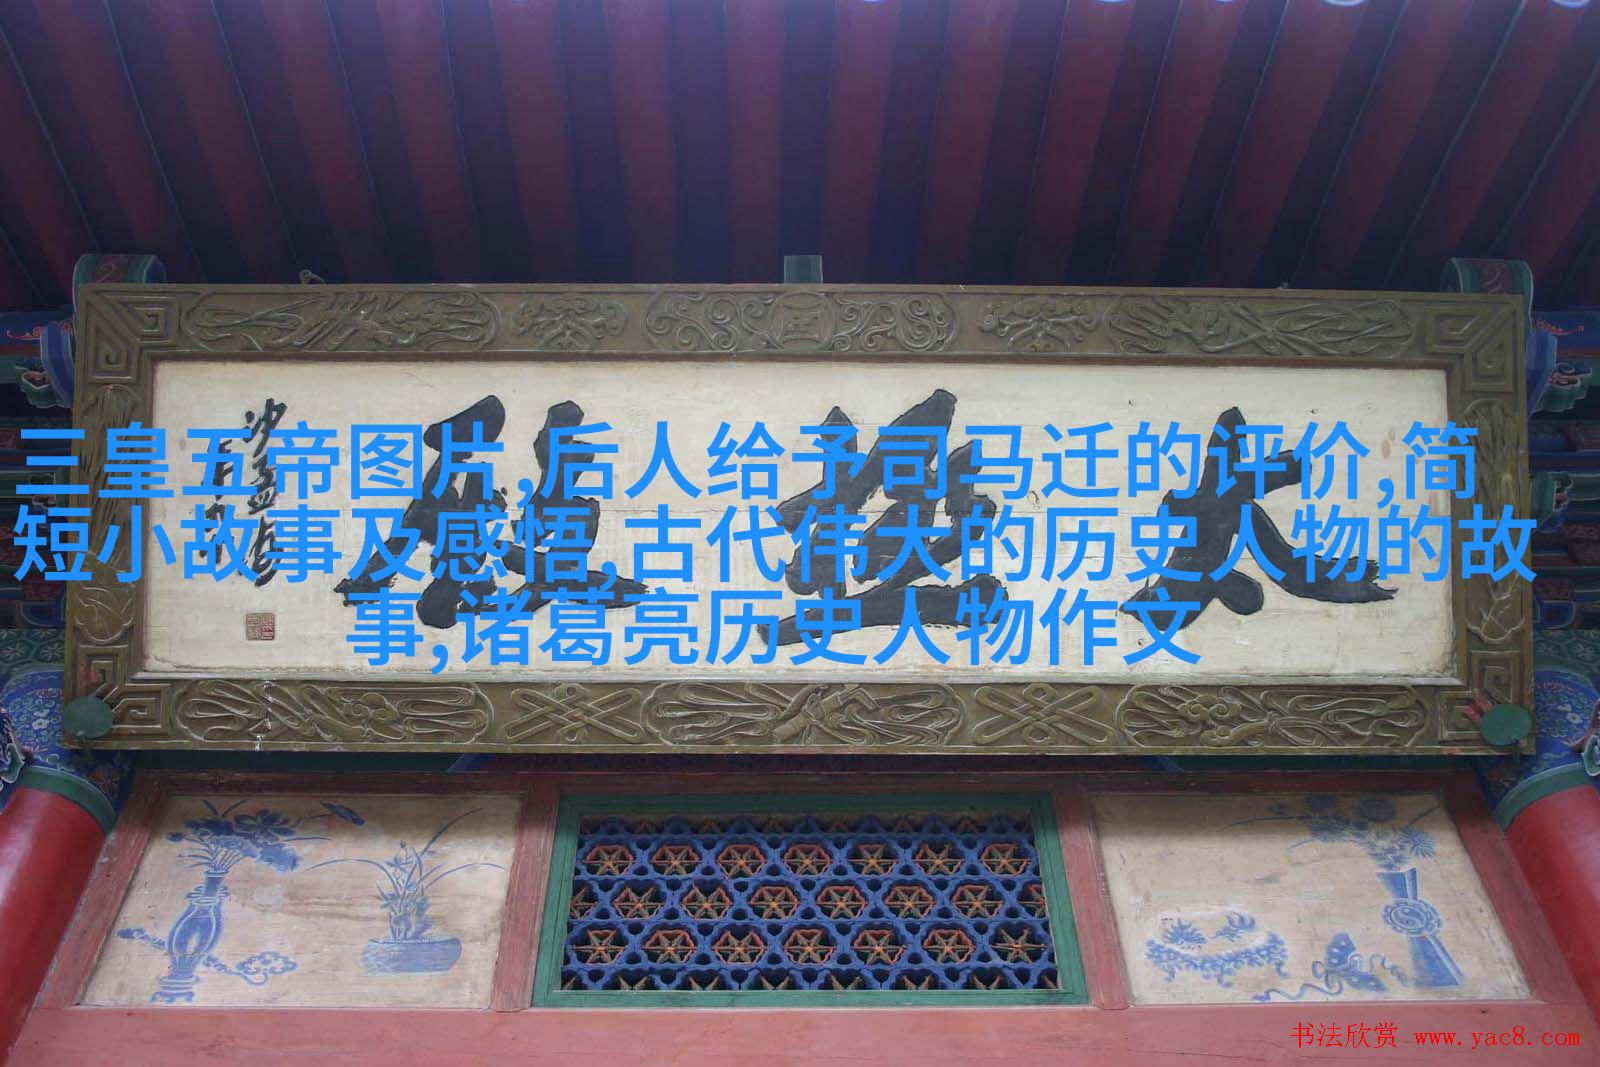 三皇五帝图片,后人给予司马迁的评价,简
短小故事及感悟,古代伟大的历史人物的故
事,诸葛亮历史人物作文
太极殿
沙孟海
书法欣赏 www.yac8.com